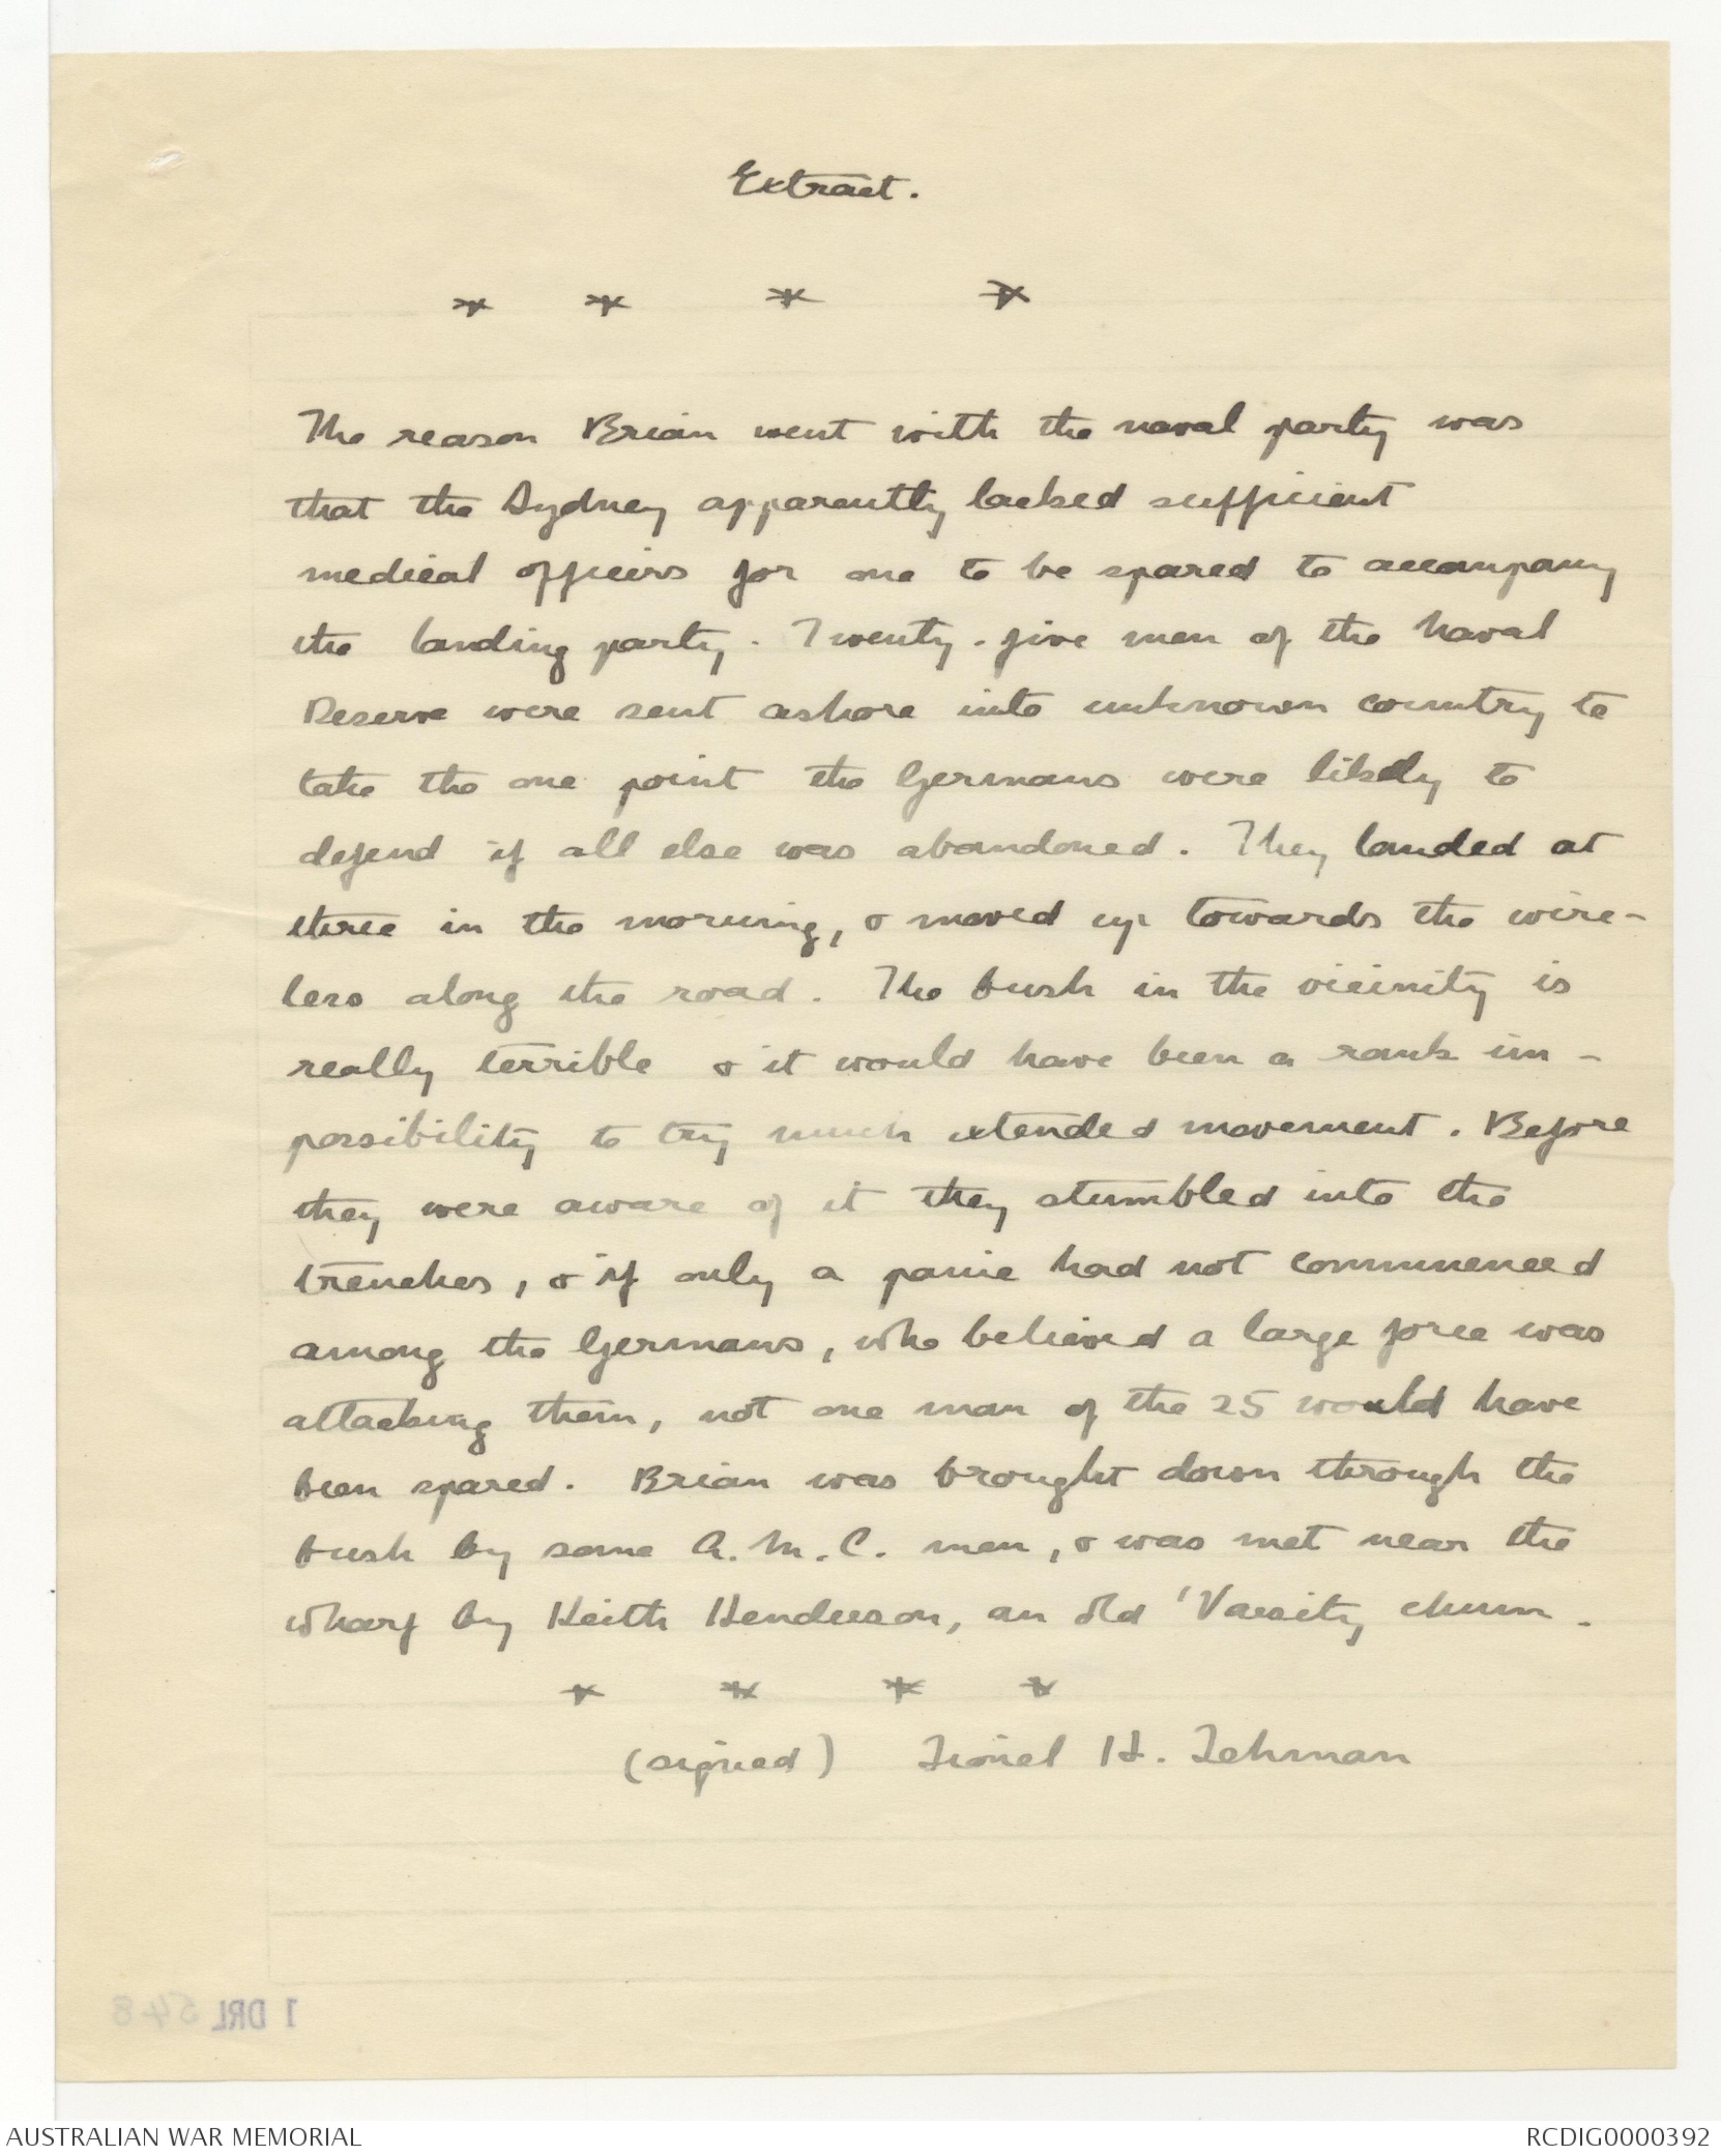 Extract.
* * * *
The reason Brian went with the naval party was
that the Sydney apparently lacked sufficient
medical officers for one to be spared to accompany
the landing party. Twenty-five men of the Naval
Reserve were sent ashore into unknown country to
take the one point the Germans were likely to
defend if all else was abandoned. They landed at
three in the morning, & moved up towards the wire-
less along the road. The bush in the vicinity is
really terrible & it would have been a rank im-
possibility to try much extended movement. Before
they were aware of it they stumbled into the
trenches, & if only a panic had not commenced
among the Germans, who believed a large force was
attacking them, not one man of the 25 would have
been spared. Brian was brought down through the
bush by some A.M.C. men, & was met near the
wharf by Keith Henderson, an old 'Varsity chum.
* * * *
(signed) Lionel H. Lehman
1 DRL 548
AUSTRALIAN WAR MEMORIAL
RCDIG0000392